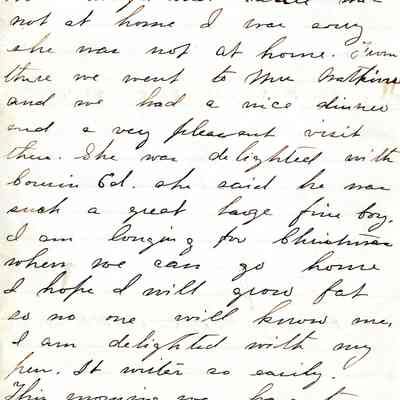 not at home I was sorry
she was not at home. From
there we went to Mrs Watkins
and we had a nice dinner
and a very pleasant visit
then. She was delighted with
Cousin Ed. she said he was
such a great large fine boy.
I am longing for Christmas
when we can go home
I hope I will grow fat
so no one will know me,
I am delighted with my
pen. It writes so easily.
This morning we